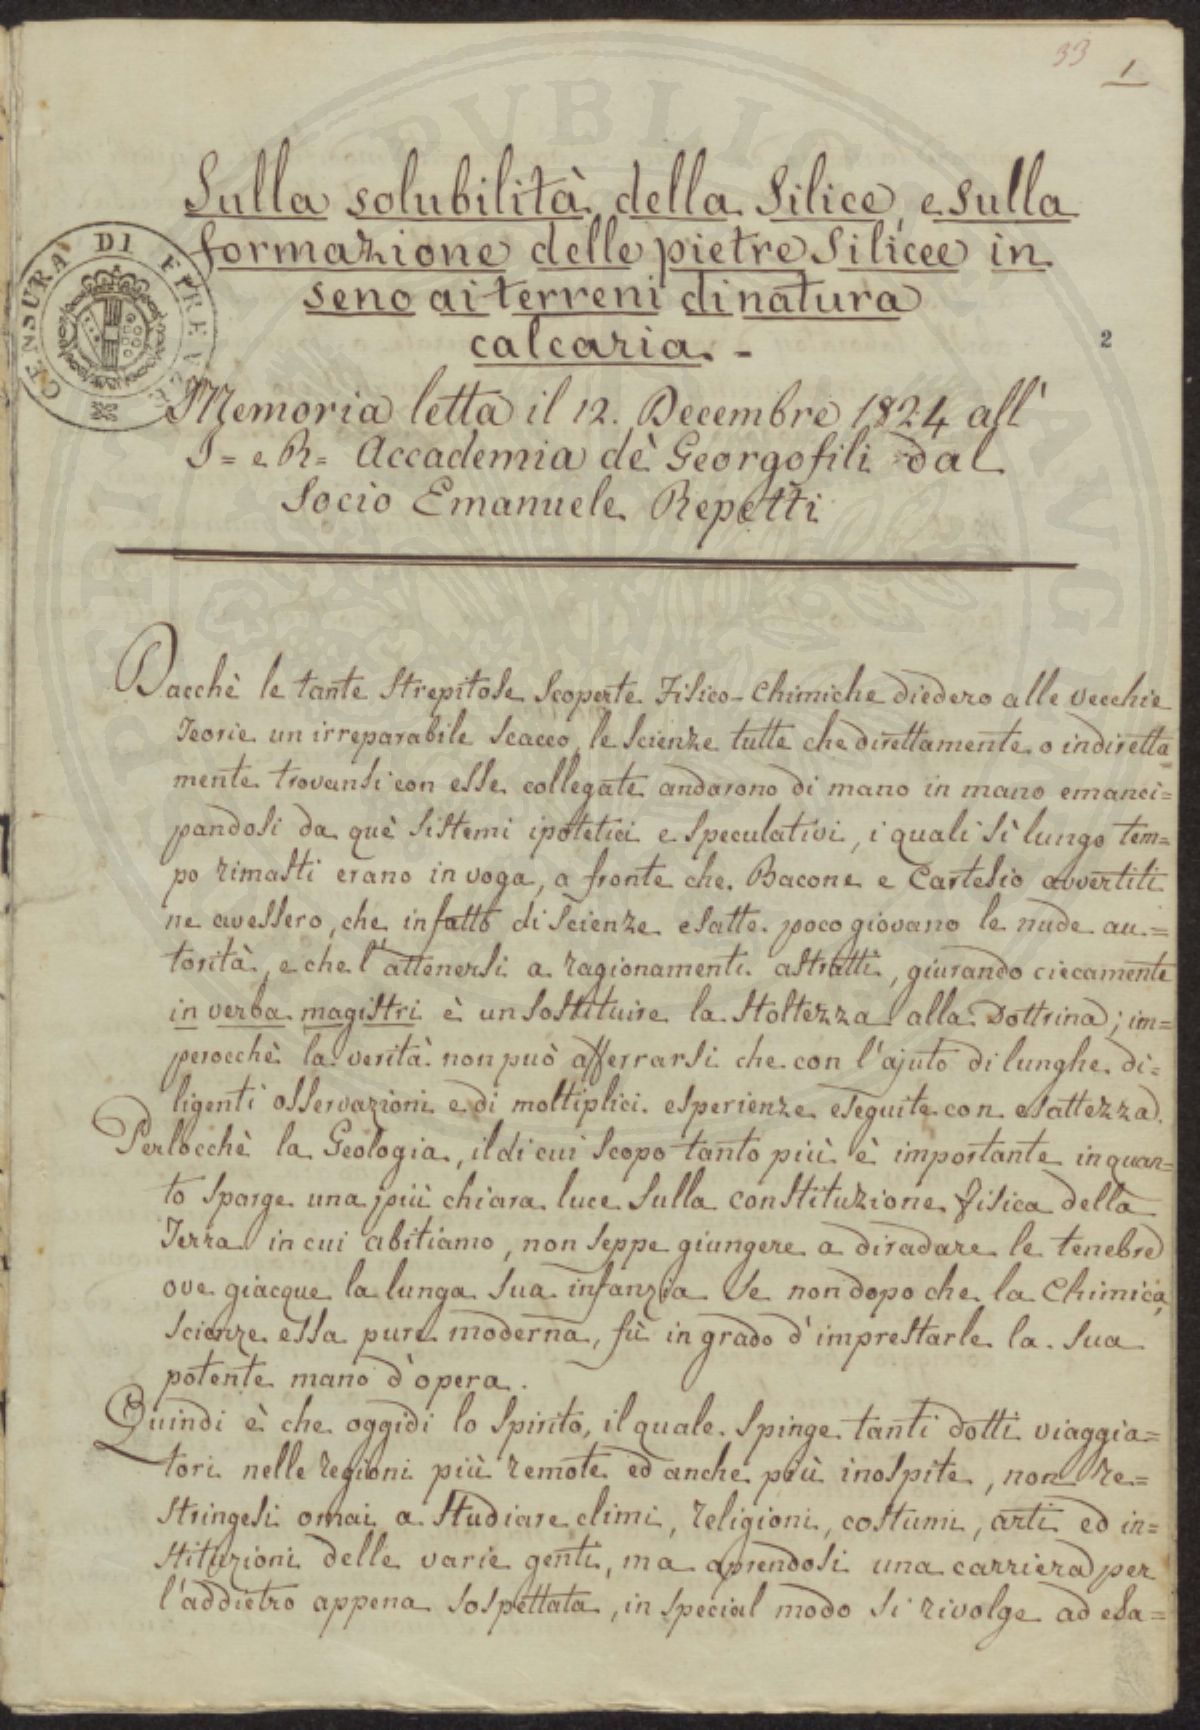 33 1
Sulla solubilità della Silice, e sulla
formazione delle pietre Silicee in
seno ai terreni di natura
calcaria. -
2
CENSURA DI FIRENZE
Memoria letta il 12. Decembre 1824 all'
I= e R= Accademia dè Georgofili dal
Socio Emanuele Repetti
Dacchè le tante strepitose scoperte Fisico-Chimiche diedero alle vecchie
Teorie un irreparabile scacco, le scienze tutte che direttamente o indiretta=
mente trovansi con esse collegate andarono di mano in mano emanci=
pandosi da què sistemi ipotetici e speculativi, i quali sì lungo tem=
po rimasti erano in voga, a fronte che Bacone e Cartesio avvertiti
ne avessero, che in fatto di scienze esatte poco giovano le nude au=
torità, e che l'attenersi a ragionamenti astratti, giurando ciecamente
in verba magistri è un sostituire la stoltezza alla Dottrina; im=
perocchè la verità non può afferrarsi che con l'ajuto di lunghe di=
ligenti osservazioni e di moltiplici esperienze eseguite con esattezza.
Perlocchè la Geologia, il di cui scopo tanto più è importante in quan=
to sparge una più chiara luce sulla constituzione fisica della
Terra in cui abitiamo, non seppe giungere a diradare le tenebre
ove giacque la lunga sua infanzia se non dopo che la Chimica,
scienze essa pure moderna, fù in grado d'imprestarle la sua
potente mano d'opera.
Quindi è che oggidì lo spirito, il quale spinge tanti dotti viaggia=
tori nelle regioni più remote ed anche più inospite, non re=
stringesi omai a studiare climi, religioni, costumi, arti ed in=
stituzioni delle varie genti, ma aprendosi una carriera per
l'addietro appena sospettata, in special modo si rivolge ad esa=